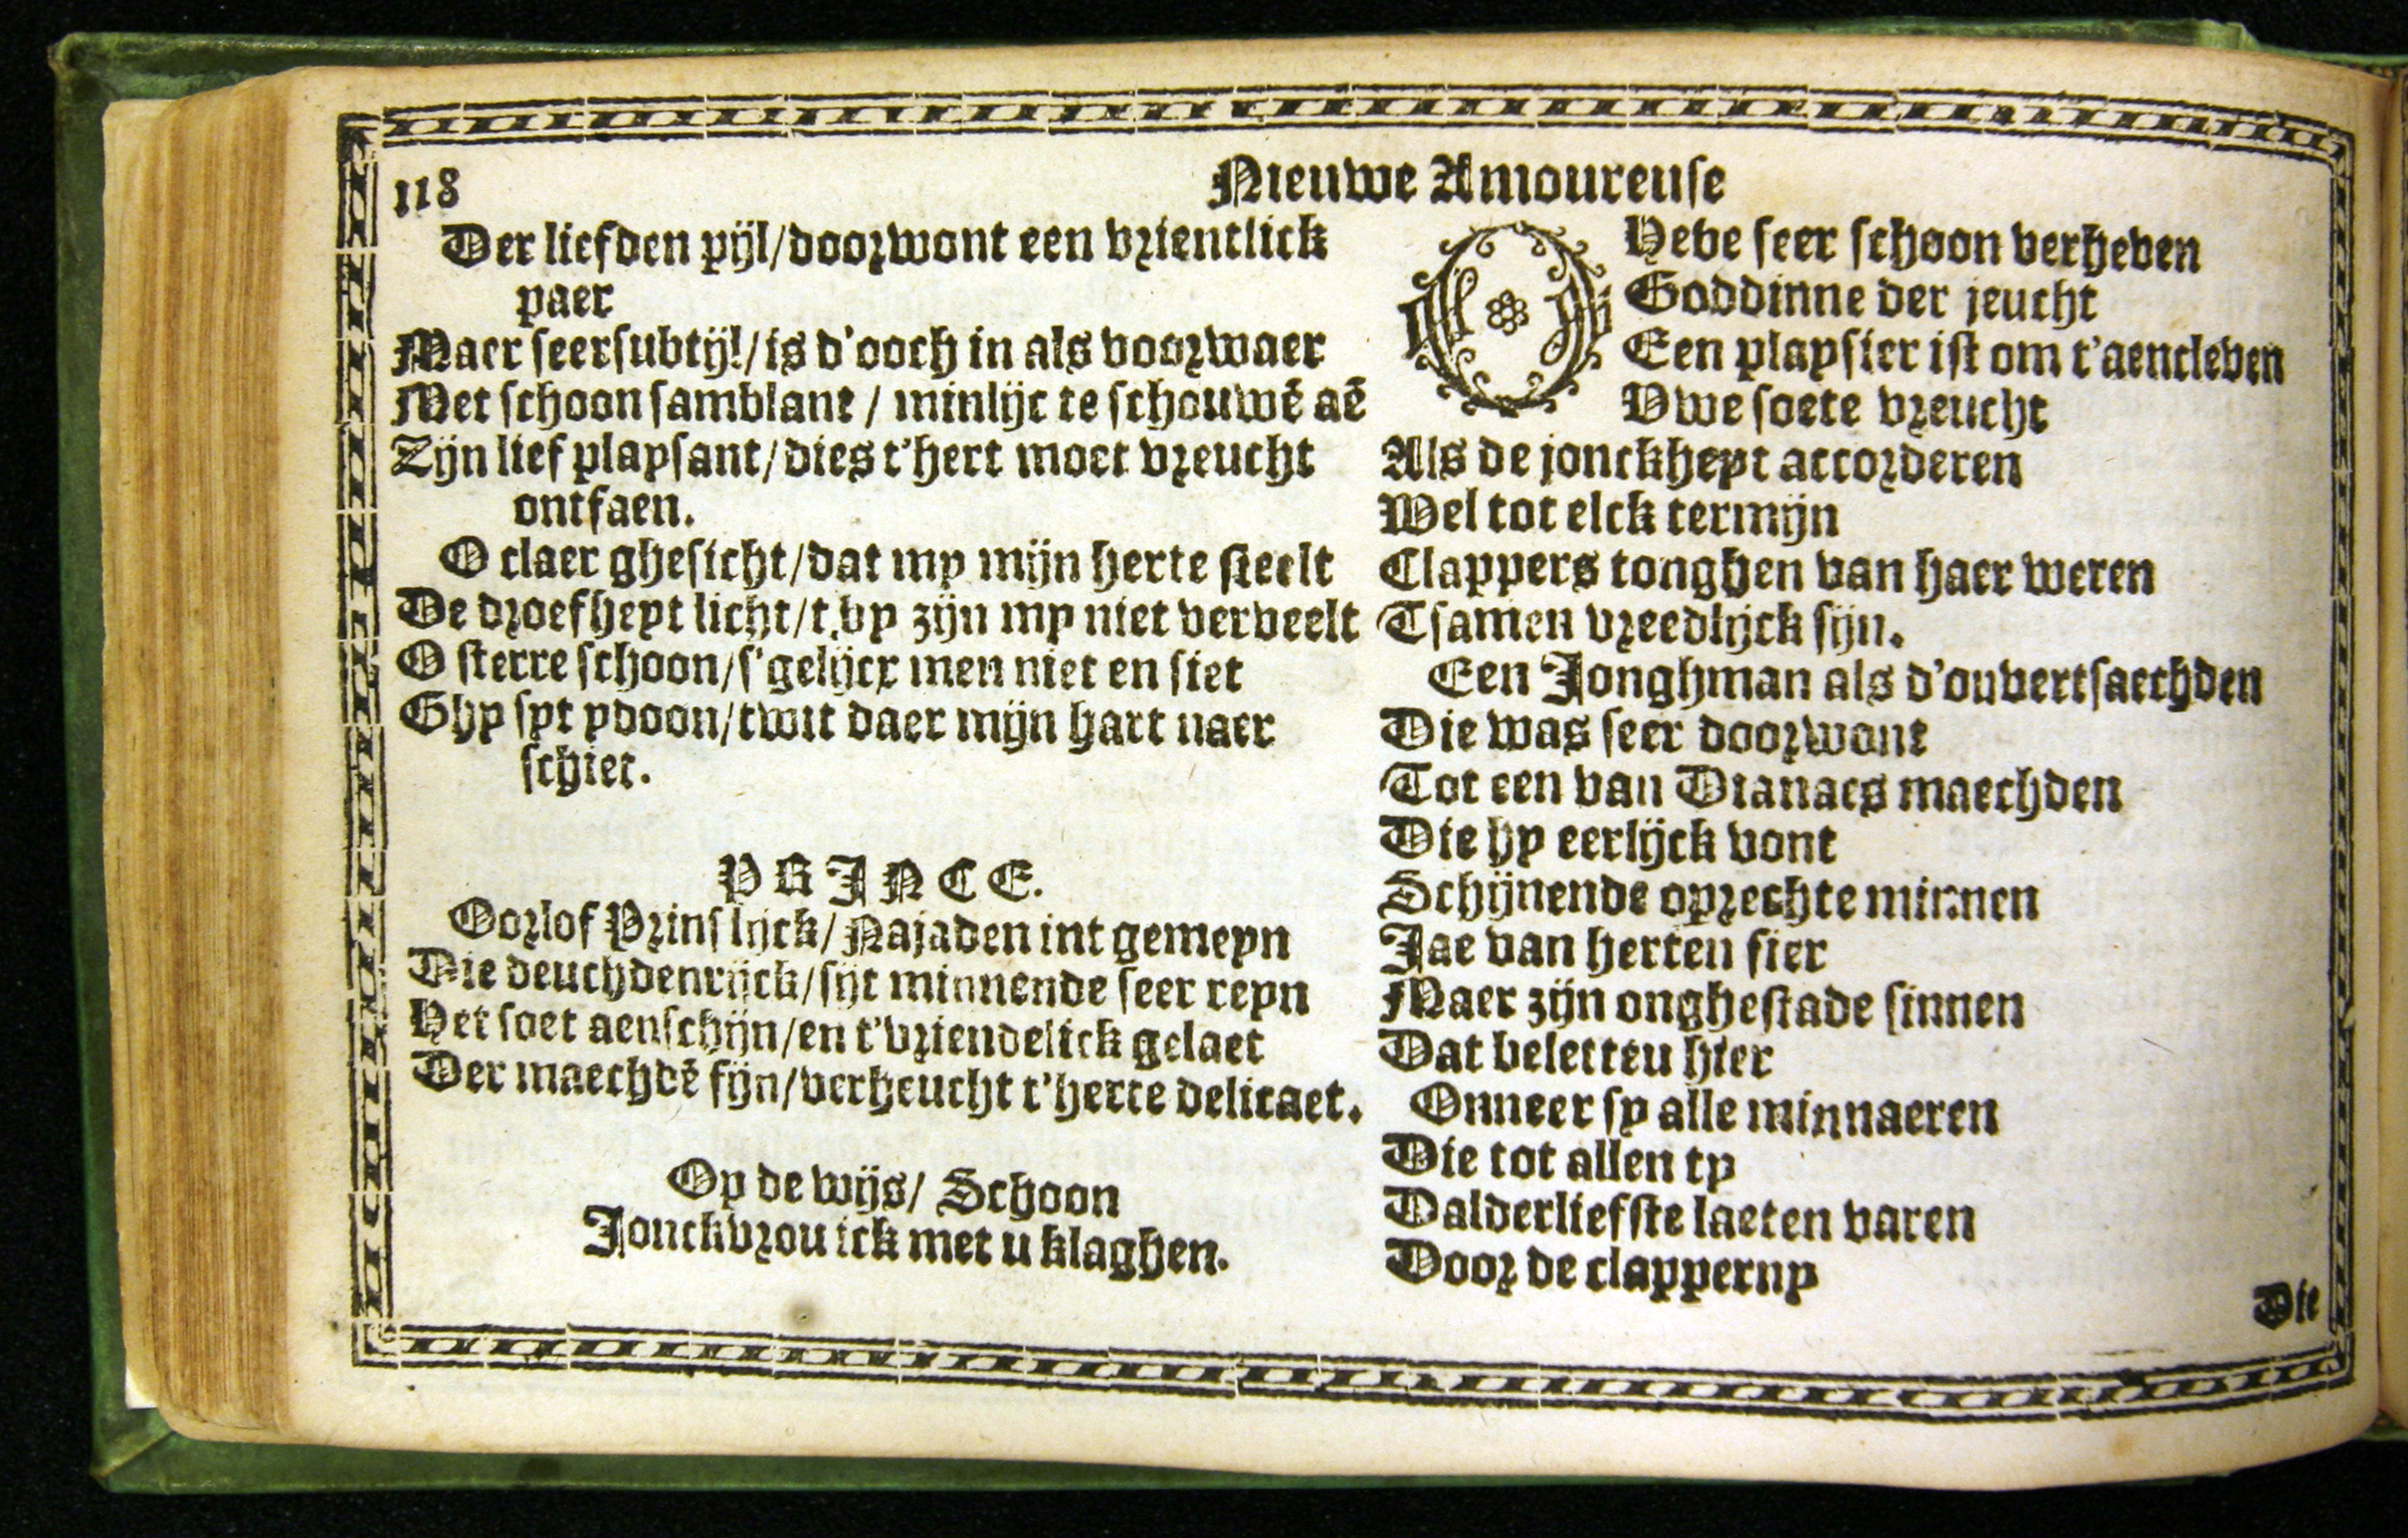 118
Nieuwe Amoureuse
Der liefden pijl/doorwont een vrientlick
paer
Maer seer subtijl/is d'ooch in als voorwaer
Met schoon samblant / minlijc te schouwē aē
Zijn lief playsant/dies t'hert moet vreucht
ontfaen.
O claer ghesicht/dat my mijn herte steelt
De droefheyt licht/t.by zijn my niet verveelt
O sterre schoon/s'gelijcx men niet en siet
Ghy syt ydoon/twit daer mijn hart naer
schiet.
PRINCE.
Oorlof Prinslijck/Najaden int gemeyn
Die deuchdenrijck/sijt minnende seer reyn
Het soet aenschijn/en t'vriendelick gelaet
Der maechdē fijn/verheucht t'herte delicaet.
Op de wijs/ Schoon
Jonckvrou ick met u klaghen.
O Hebe seer schoon verheven
Goddinne der jeucht
Een playsier ist om t'aencleven
Vwe soete vreucht
Als de jonckheyt accorderen
Wel tot elck termijn
Clappers tonghen van haer weren
Tsamen vreedlijck sijn.
Een Jonghman als d'onvertsaechden
Die was seer doorwont
Tot een van Dianaes maechden
Die hy eerlijck vont
Schijnende oprechte minnen
Jae van herten fier
Maer zijn onghestade sinnen
Dat beletteu hier
Onneer sy alle minnaeren
Die tot allen ty
Dalderliefste laeten varen
Door de clapperny
Die